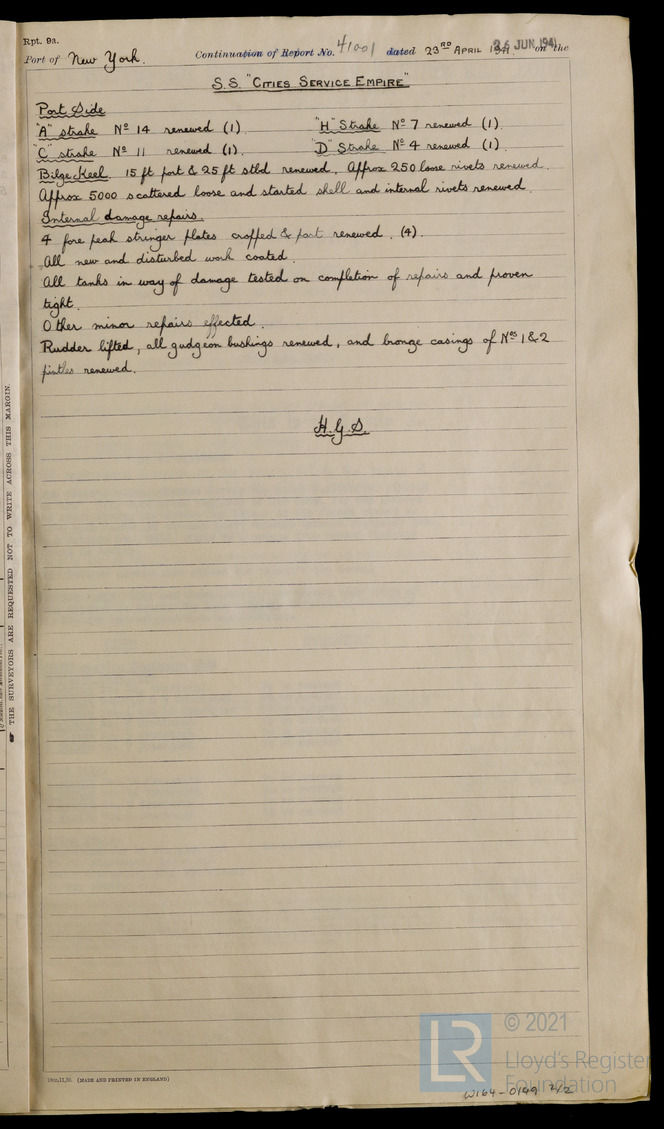 Rpt. 9a.
Port of New York. Continuation of Report No. 41001 dated 23RD APRIL 1941. on the
26 JUN 1941
S.S. "CITIES SERVICE EMPIRE"
Port Side
"A" strake No 14 renewed (1). "H" Strake No 7 renewed (1).
"C" strake No 11 renewed (1). "D" Strake No 4 renewed (1).
Bilge Keel 15 ft port & 25 ft stbd renewed. Approx 250 loose rivets renewed.
Approx 5000 scattered loose and started shell and internal rivets renewed.
Internal damage repairs.
4 fore peak stringer plates cropped & part renewed. (4).
All new and disturbed work coated.
All tanks in way of damage tested on completion of repairs and proven
tight.
Other minor repairs effected.
Rudder lifted, all gudgeon bushings renewed, and bronge casings of Nos 1 & 2
pintles renewed.
H.G.S.
THE SURVEYORS ARE REQUESTED NOT TO WRITE ACROSS THIS MARGIN.
(MADE AND PRINTED IN ENGLAND)
LR
© 2021
Lloyd's Register
Foundation
W164-0149 2/2